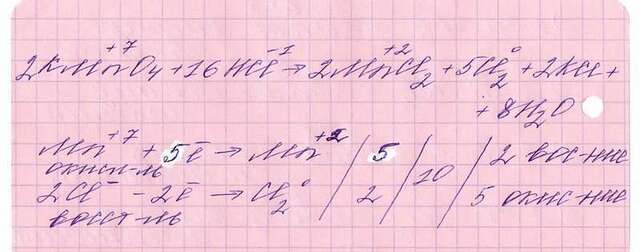 2KMnO₄ + 16HCl → 2MnCl₂ + 5Cl₂ + 2KCl +
+7 -1 +2 0
+ 8H₂O
Mn⁺⁷ + 5ē → Mn⁺² / 5 / 10 / 2 вос-ние
окисл-ль
2Cl⁻ - 2ē → Cl₂⁰ / 2 / / 5 окис-ние
восст-ль